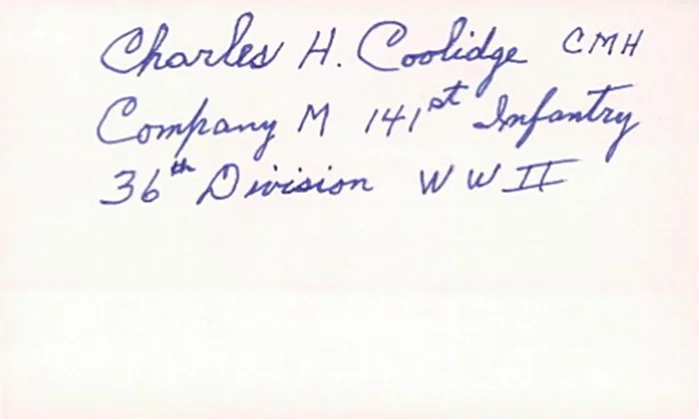 Charles H. Coolidge CMH
Company M 141st Infantry
36th Division WW II